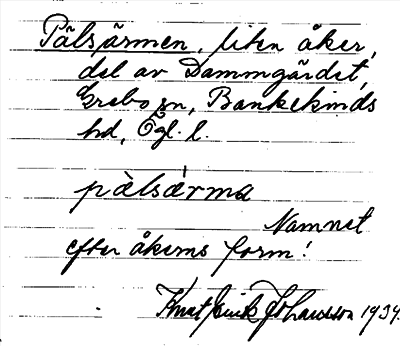 Pälsärmen, liten åker,
del av Dammgärdet,
Grebo sn, Bankekinds
hd, Ögl. l.
pälsärma
Namnet
efter åkerns form!
Knut Erik Johansson 1934.